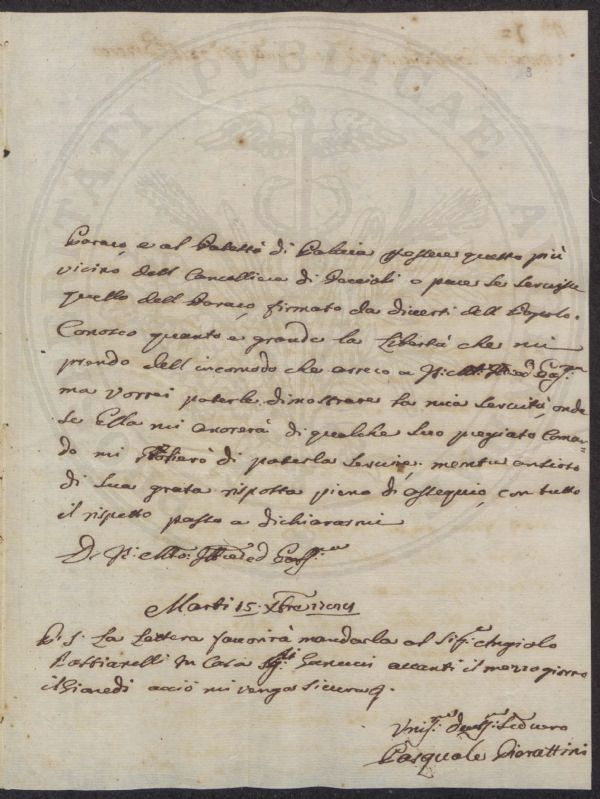 Paraco, e al Podestà di Palaia stesse questo più
vicino dell Cancelliere di Peccioli o pure se servisse
quello dell Paraco firmato da diversi dell Popolo.
Conosco quanto e grande la Libertà che mi
prendo dell incomodo che arreco a
ma vorrei poterle dimostrare la mia servitù, onde
se Ella mi onorerà di qualche suo pregiato Coman-
do mi di poterla servire, mentre ansioso
di sua grata risposta pieno di ossequio, con tutto
il rispetto passo a dichiararmi
Di
Marti 15: Xbre
P. S. La Lettera favorirà mandarla al Sig.r Angiolo
in Casa avanti il mezzo giorno
il Giovedì acciò mi venga sicura
Servo vero
Pasquale Fiorattini